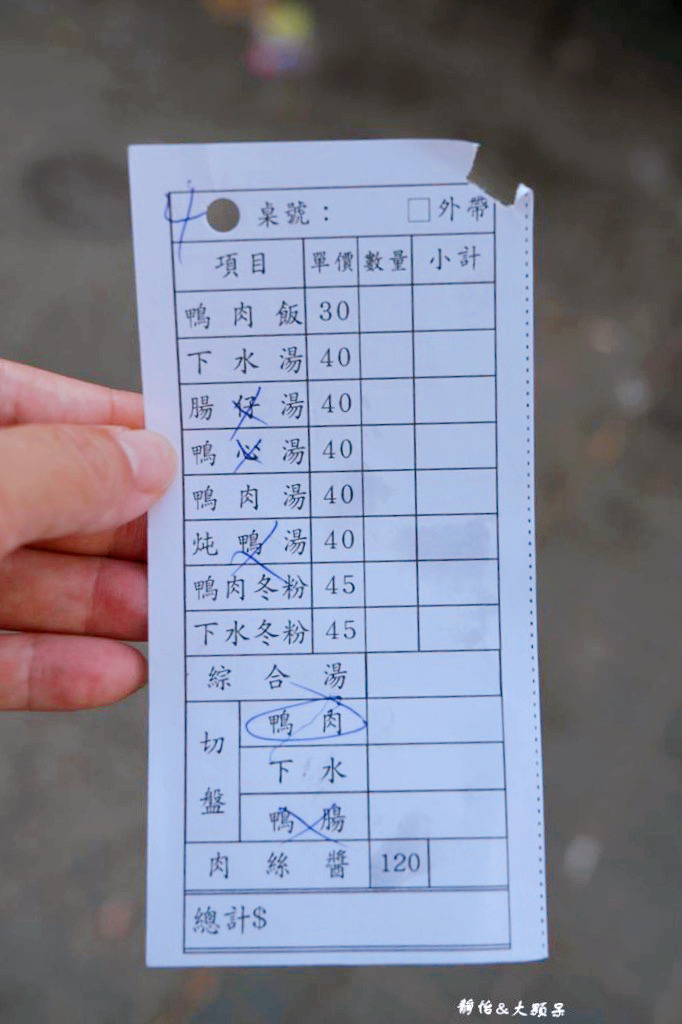 4 桌號： □外帶
項目 單價 數量 小計
鴨肉飯 30
下水湯 40
腸仔湯 40
鴨心湯 40
鴨肉湯 40
炖鴨湯 40
鴨肉冬粉 45
下水冬粉 45
綜合湯
切盤 鴨肉
下水
鴨腸
肉絲醬 120
總計$
靜怡&大顆呆